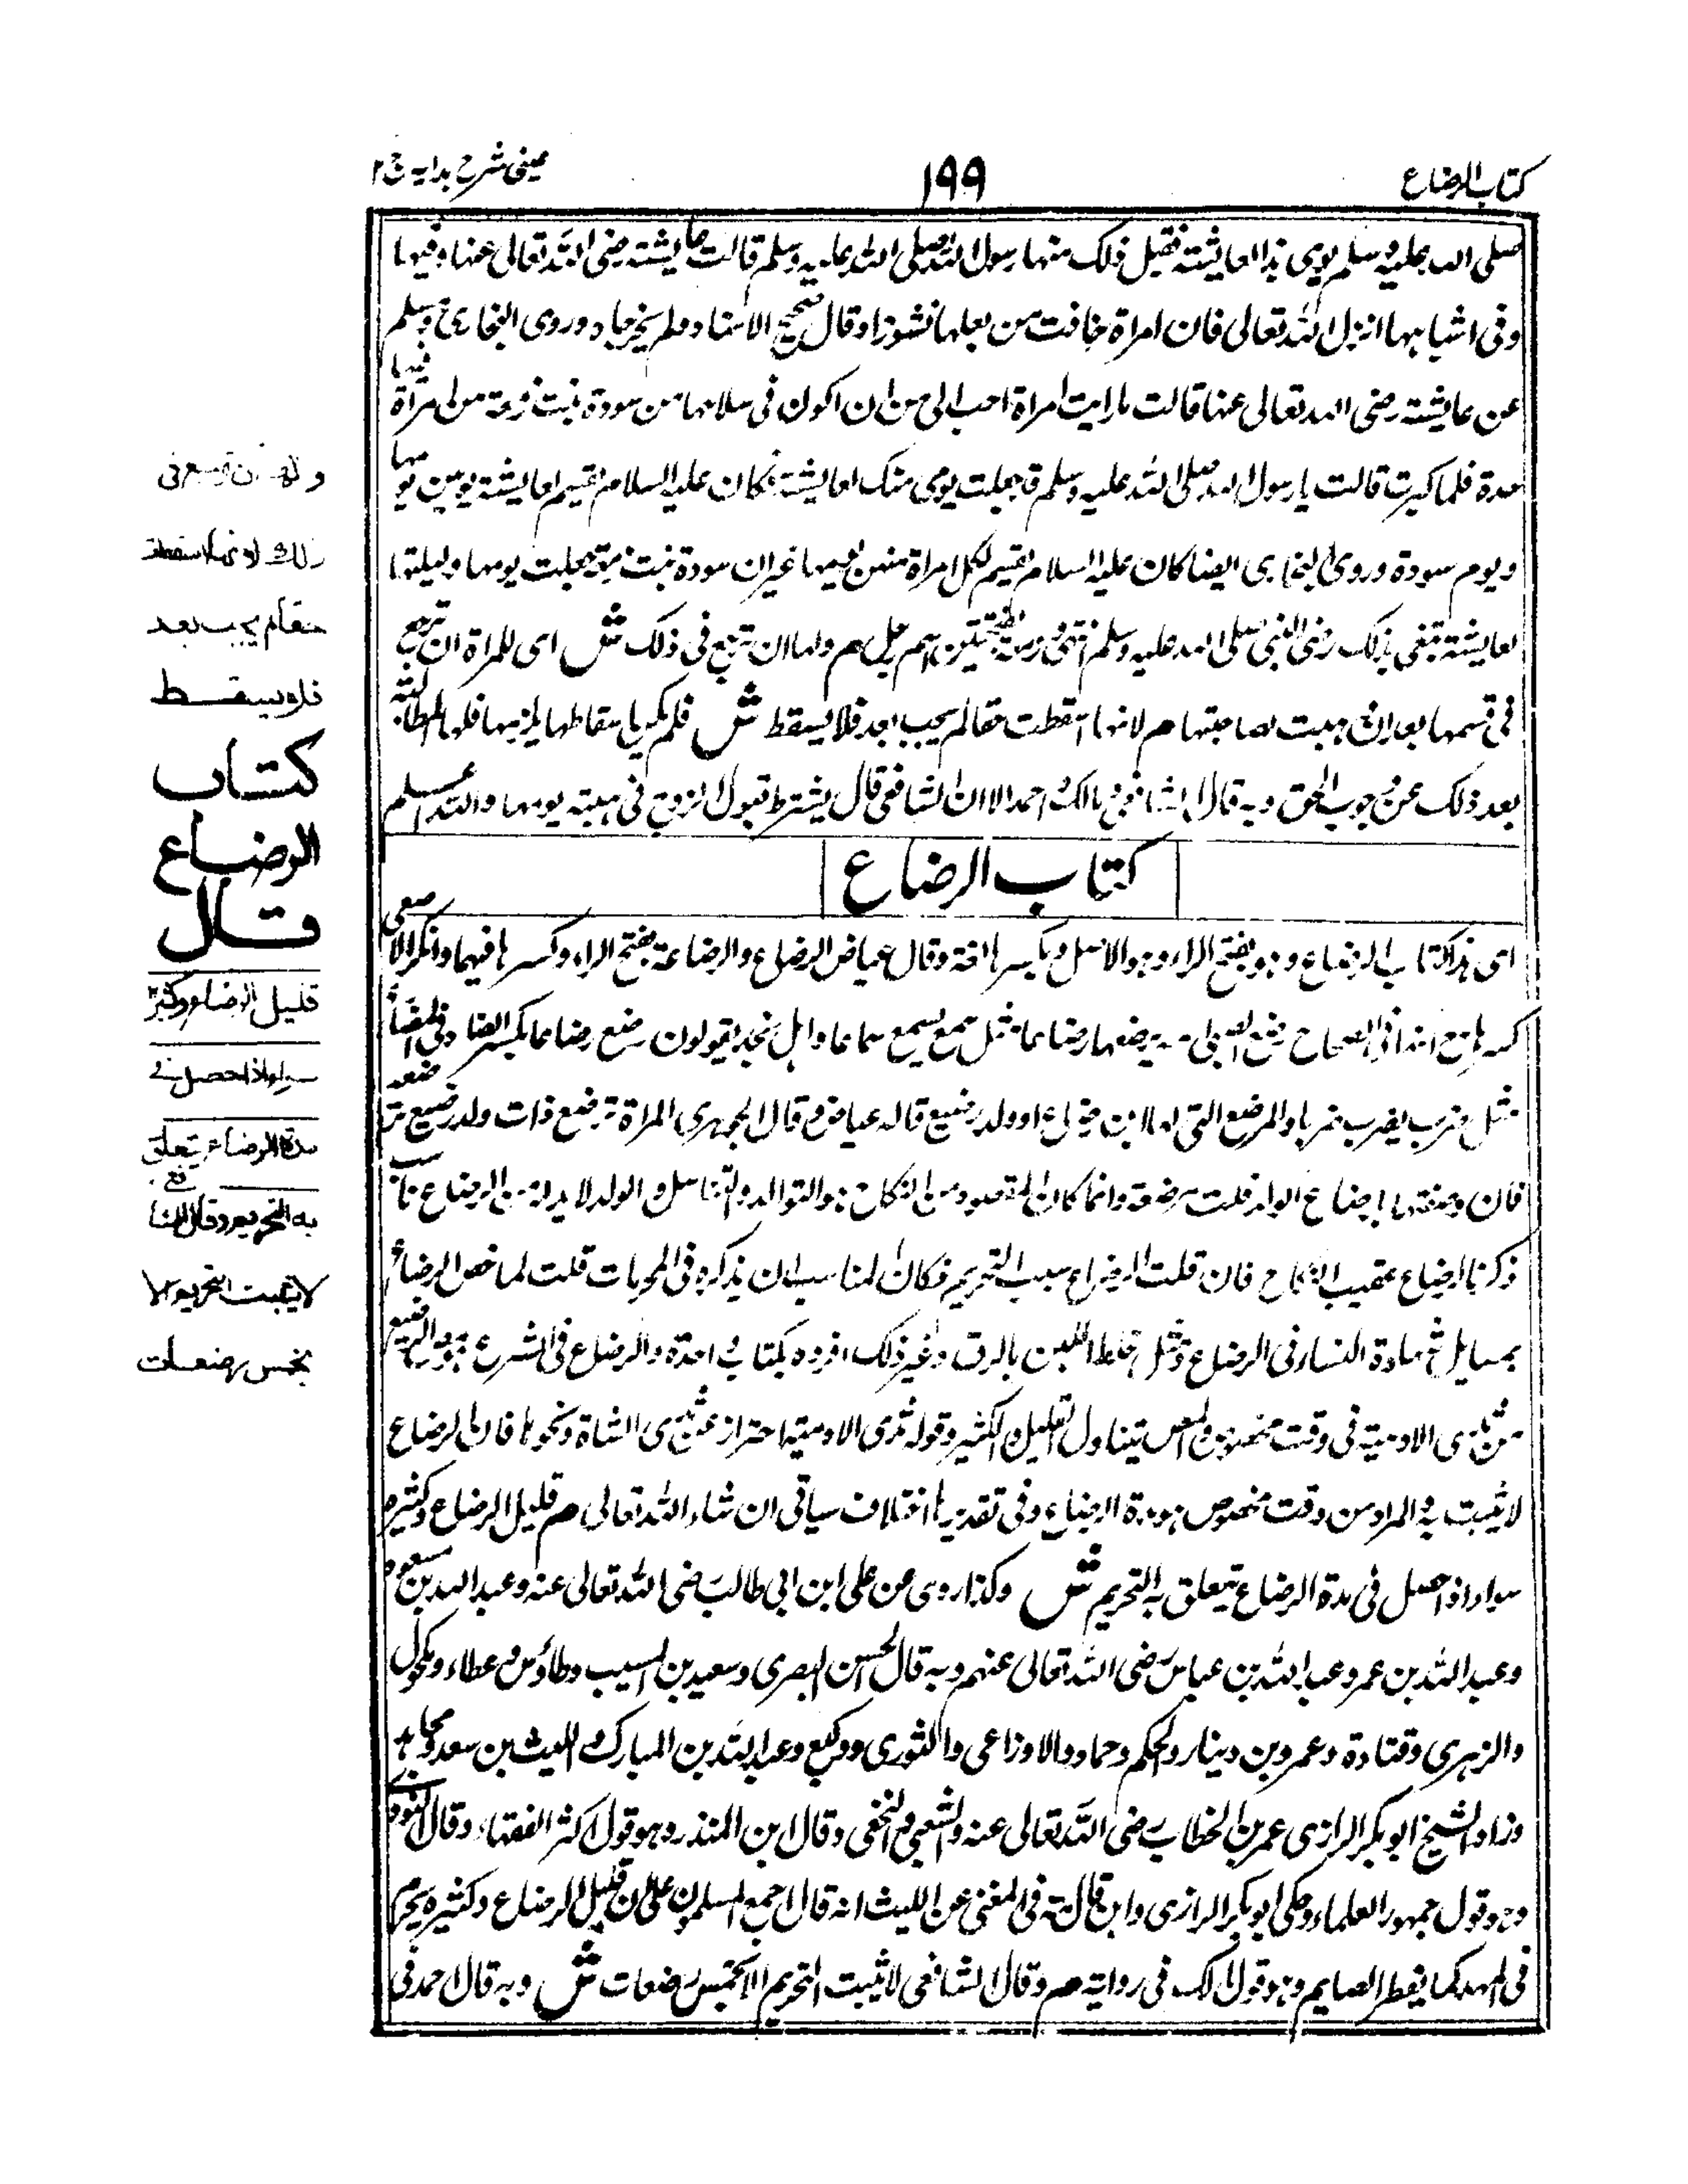 كتاب الرضاع
١٩٩
عینی شرح ہدایہ ج ٢
صلی الله علیه وسلم یومی هذا لعایشة فقبل ذلک منها رسول الله صلی الله علیه وسلم قالت عایشة رضی الله تعالی عنها وفیها
وفی اشباهها انزل الله تعالی فان امراة خافت من بعلها نشوزا وقال صحیح الاسناد ولم یخرجاه وروی البخاری ومسلم
عن عایشة رضی الله تعالی عنها قالت ما رایت امراة احب الی من ان اکون فی سلاخها من سودة بنت زمعة من امراة فیها
حدة فلما کبرت قالت یا رسول الله صلی الله علیه وسلم قد جعلت یومی منک لعایشة فکان علیه السلام یقسم لعایشة یومین یومها
ویوم سودة وروی البخاری ایضا کان علیه السلام یقسم لکل امراة منهن یومها غیر ان سودة بنت زمعة جعلت یومها ولیلتها
لعایشة تبتغی بذلک رضی النبی صلی الله علیه وسلم انتهی اسم رجل م ولها ان ترجع فی ذلک ش ای للمراة ان ترجع
فی قسمها بعد ان وهبت لصاحبتها م لانها اسقطت حقا لم یجب بعد فلا یسقط ش فلم یکن باسقاطها یلزمها فلها المطالبة
بعد ذلک عن وجوب الحق وبه قال الشافعی ومالک واحمد الا ان الشافعی قال یشترط قبول الزوج فی هبته یومها والله اعلم
كتاب الرضاع
ای هذا کتاب الرضاع وهو بفتح الراء وهو الاصل وبکسرها لغة وقال عیاض الرضاع والرضاعة بفتح الراء وکسرها فیهما وانکر الاصمعی
کسرها مع الهاء وفی الصحاح رضع الصبی امه یرضعها رضاعا مثل سمع یسمع سماعا واهل نجد یقولون رضع رضاعا بکسر الضاد وفی المضارع
مثل ضرب یضرب ضربا والمرضع التی لها لبن رضاع او ولد رضیع قاله عیاض وقال الجوهری المراة مرضع ذات ولد رضیع ترضعه
فان وصفتها بارضاع الولد قلت مرضعة وانما کان المقصود من النکاح هو التوالد والتناسل والولد لا بد له من الرضاع ناسب
ذکر الرضاع عقیب النکاح فان قلت الرضاع سبب التحریم فکان المناسب ان یذکره فی المحرمات قلت لما خص الرضاع
بمسایل شهادة النساء فی الرضاع ومثل خلط اللبن بالدواء وغیر ذلک افرده بکتاب واحدة والرضاع فی الشرع هو مص الرضیع
من ثدی الادمیة فی وقت مخصوص والمص یتناول القلیل والکثیر وقوله ثدی الادمیة احتراز عن ثدی الشاة ونحوها فان الرضاع
لا یثبت به المراد من وقت مخصوص هو مدة الرضاع وفی تقدیرها اختلاف سیاتی ان شاء الله تعالی م قلیل الرضاع وکثیره
سواء اذا حصل فی مدة الرضاع یتعلق به التحریم ش وکذا روی عن علی ابن ابی طالب رضی الله تعالی عنه وعبد الله بن مسعود
وعبد الله بن عمر وعبد الله بن عباس رضی الله تعالی عنهم وبه قال الحسن البصری وسعید بن المسیب وطاؤس وعطاء ومکحول
والزهری وقتادة وعمرو بن دینار والحکم وحماد والاوزاعی والثوری ووکیع وعبد الله بن المبارک واللیث بن سعد ومجاهد
وزاد الشیخ ابو بکر الرازی عمر بن الخطاب رضی الله تعالی عنه والشعبی والنخعی وقال ابن المنذر وهو قول اکثر الفقهاء وقال النووی
وهو قول جمهور العلماء وحکی ابو بکر الرازی وابن قدامة فی المغنی عن اللیث انه قال اجمع المسلمون علی ان قلیل الرضاع وکثیره یحرم
فی المهد کما یفطر الصایم وهو قول مالک فی روایة م وقال الشافعی لا یثبت التحریم الا بخمس رضعات ش وبه قال احمد فی
ولها ان ترجع فی
ذلك لانها اسقطت
حقا لم یجب بعد
فلا یسقط
كتاب
الرضاع
قال
قلیل الرضاع وکثیره
سواء اذا حصل فی
مدة الرضاع یتعلق
به التحریم وقال الشافعی
لا یثبت التحریم الا
بخمس رضعات